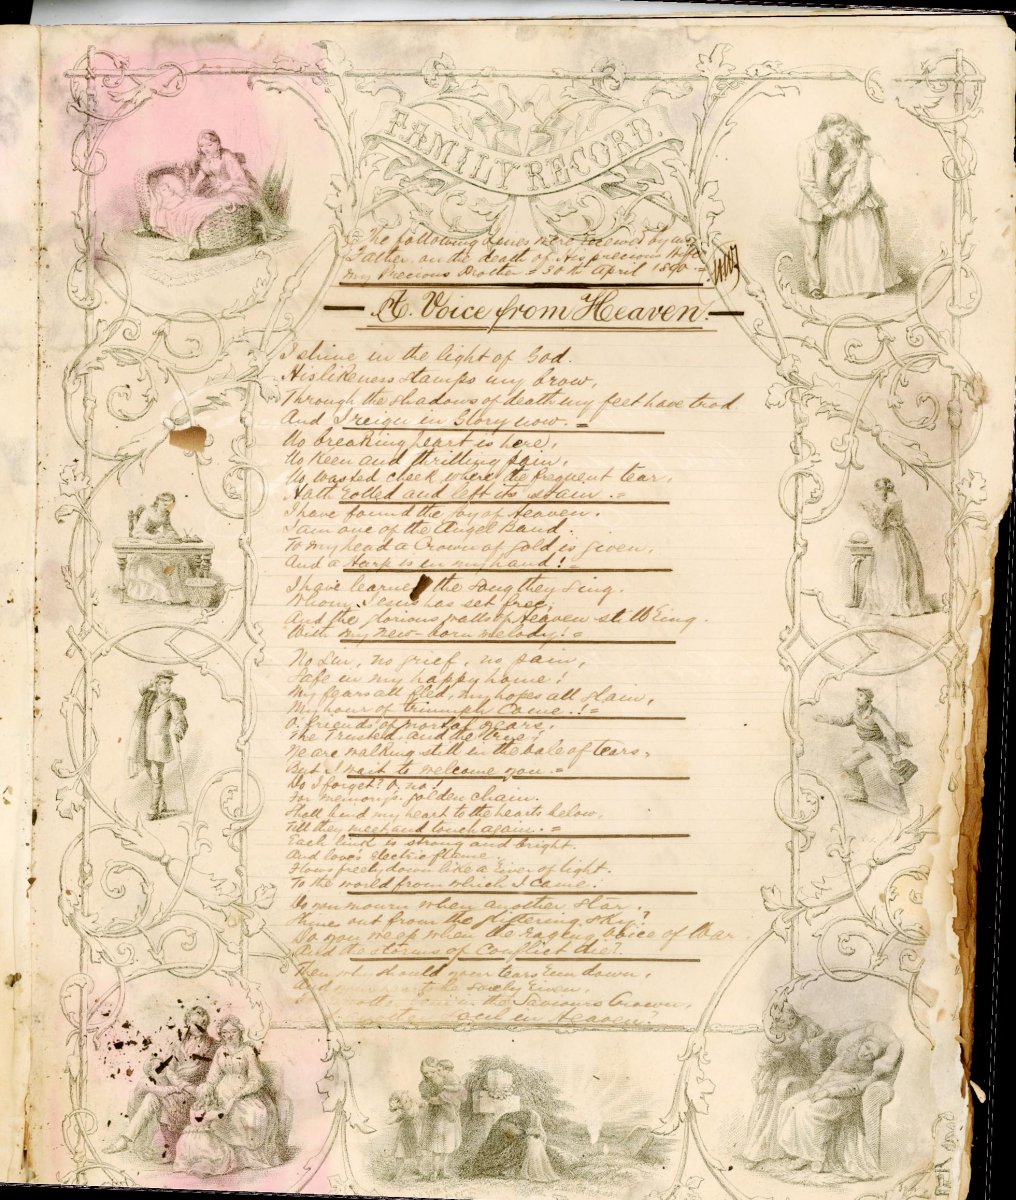 FAMILY RECORD.
The following lines were viewed by us
Father, on the death of His precious Wife
My Precious Mother = 30th April 1890 =
A. Voice from Heaven.
I shine in the light of God.
His likeness stamps my brow,
Through the shadows of death my feet have trod
And I reign in Glory now. =
No breaking heart is here,
No keen and thrilling pain,
No wasted cheek where the frequent tear,
Hath rolled and left its stain. =
I have found the joy of Heaven.
I am one of the Angel Band.
To my head a Crown of gold is given,
And a Harp is in my hand! =
I have learned the song they sing.
Whom Jesus has set free,
And the glorious walls of Heaven still Ring.
With my new-born melody! =
No Sin, no grief, no pain,
Safe in my happy home!
My fears all fled, my hopes all slain,
My hour of triumph Come.! =
O, friends of mortal years,
The Trusted and the true!
Ye are walking still in the vale of tears,
But I wait to welcome you. =
Do I forget? O, no!
For memory's golden chain.
Shall bind my heart to the hearts below,
Till they meet and touch again. =
Each link is strong and bright.
And love's electric flame,
Flows freely down like a river of light.
To the world from which I came.
Do you mourn when another star.
Shine out from the glittering sky?
Do you weep when the raging voice of War
And the storms of Conflict die?
Then why should your tears run down,
And your hearts be sorely riven,
the Saviours Crown,
Soul in Heaven?